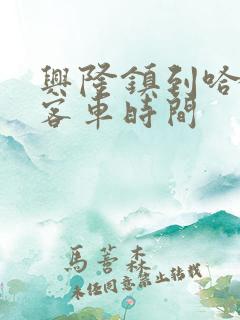 興隆鎮到哈
客車時間
馬薈森
未經同意禁止轉載